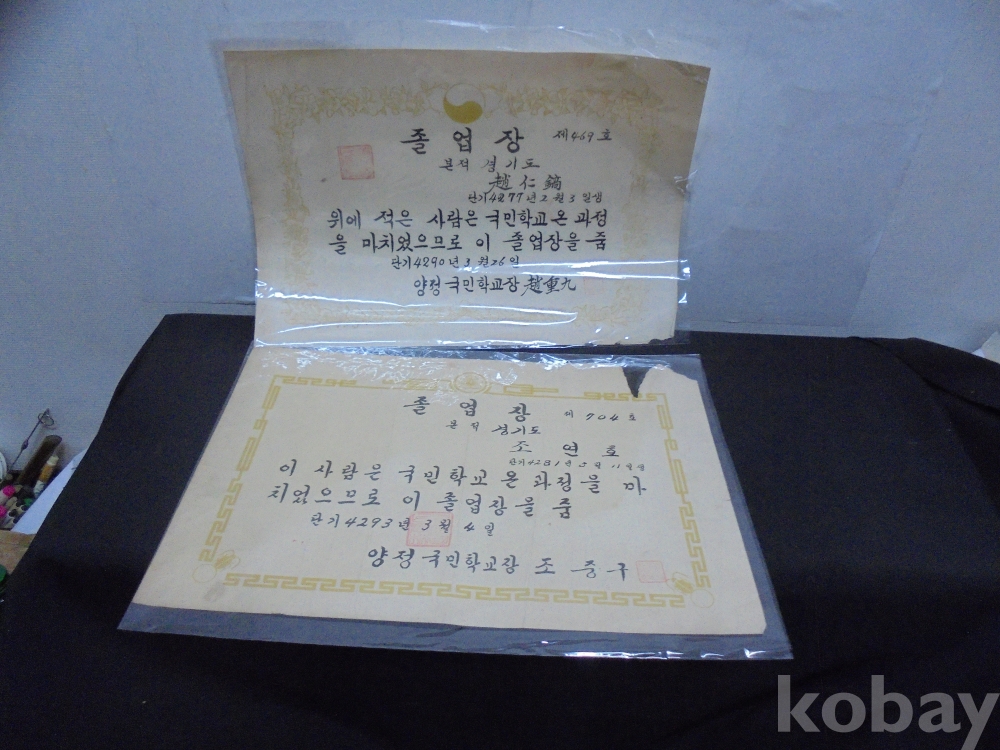 졸업장 제469호
본적 경기도
趙仁鎬
단기4277년2월3일생
위에 적은 사람은 국민학교 온 과정
을 마치었으므로 이 졸업장을 줌
단기4290년3월26일
양정국민학교장 趙重九
졸업장 제704호
본적 경기도
조연호
단기4281년 월11일생
이 사람은 국민학교 온 과정을 마
치었으므로 이 졸업장을 줌
단기4293년3월4일
양정국민학교장 조중구
kobay